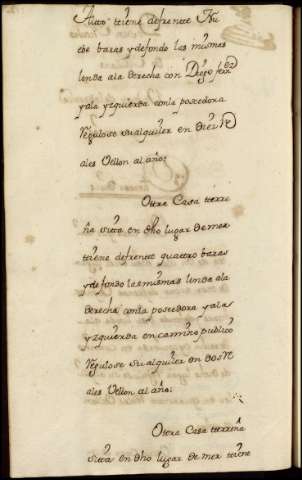 Alttο tiene defrentte Nu
ebe baras y defondo las mismas
linda ala derecha con Diego ferrz
y ala yzquierda conla poseedora
Regulose su alquiler en diez Rˢ
ales Vellon al año:
Ottra Casa tterre
ña sitta en dho lugar de mer
ttiene defrente quattro baras
y defondo las mismas linda ala
derecha conla poseedora y ala s
yzquierda en camino publico
Regulose su alquiler en dos R
ales Vellon al año:
Ottra Casa tterreña
sitta en dho lugar de mer tiene